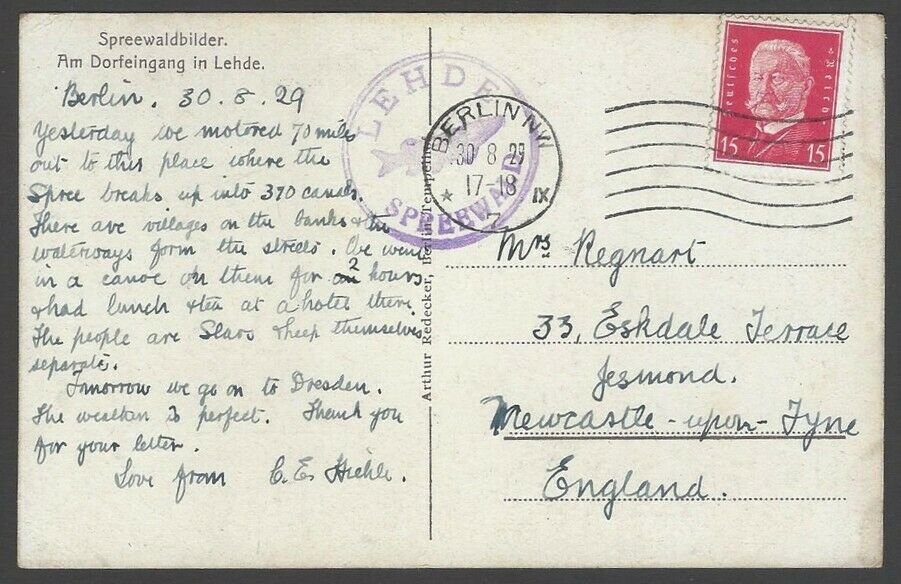 Spreewaldbilder.
Am Dorfeingang in Lehde.
Berlin. 30.8.29
Yesterday we motored 70 miles
out to this place where the
Spree breaks up into 370 canals.
There are villages on the banks & the
waterways form the streets. We went
in a canoe on them for 2 hours
& had lunch & tea at a hotel there.
The people are Slavs & keep themselves
separate.
Tomorrow we go on to Dresden.
The weather is perfect. Thank you
for your letter.
Love from C. E.
Arthur Redecker, Berlin-Tempelhof
LEHDE
SPREEWALD
BERLIN NW
30 8 29
17-18
IX
7
Deutsches Reich
15 15
Mrs Regnart
33, Eskdale Terrace
Jesmond.
Newcastle-upon-Tyne
England.